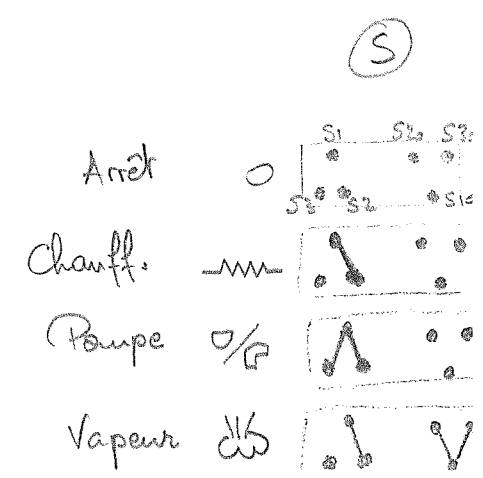 S
Arrêt S1 S2. S3.
S3 S2 S1.
Chauff.
Pompe
Vapeur